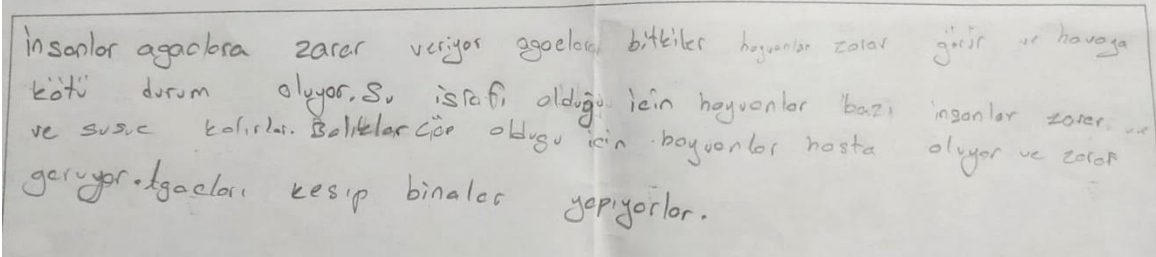 insanlar agaclara zarar veriyor agaclar bitkiler hayvanlar zarar görür ve havaya
kötü durum oluyor. Su israfı olduğu icin hayvanlar bazı insanlar zarar
ve susuc kalırlar. Balıklar cöp oldugu icin hayvanlar hasta oluyor ve zarar
geruyor. Agacları kesip binalar yapıyorlar.